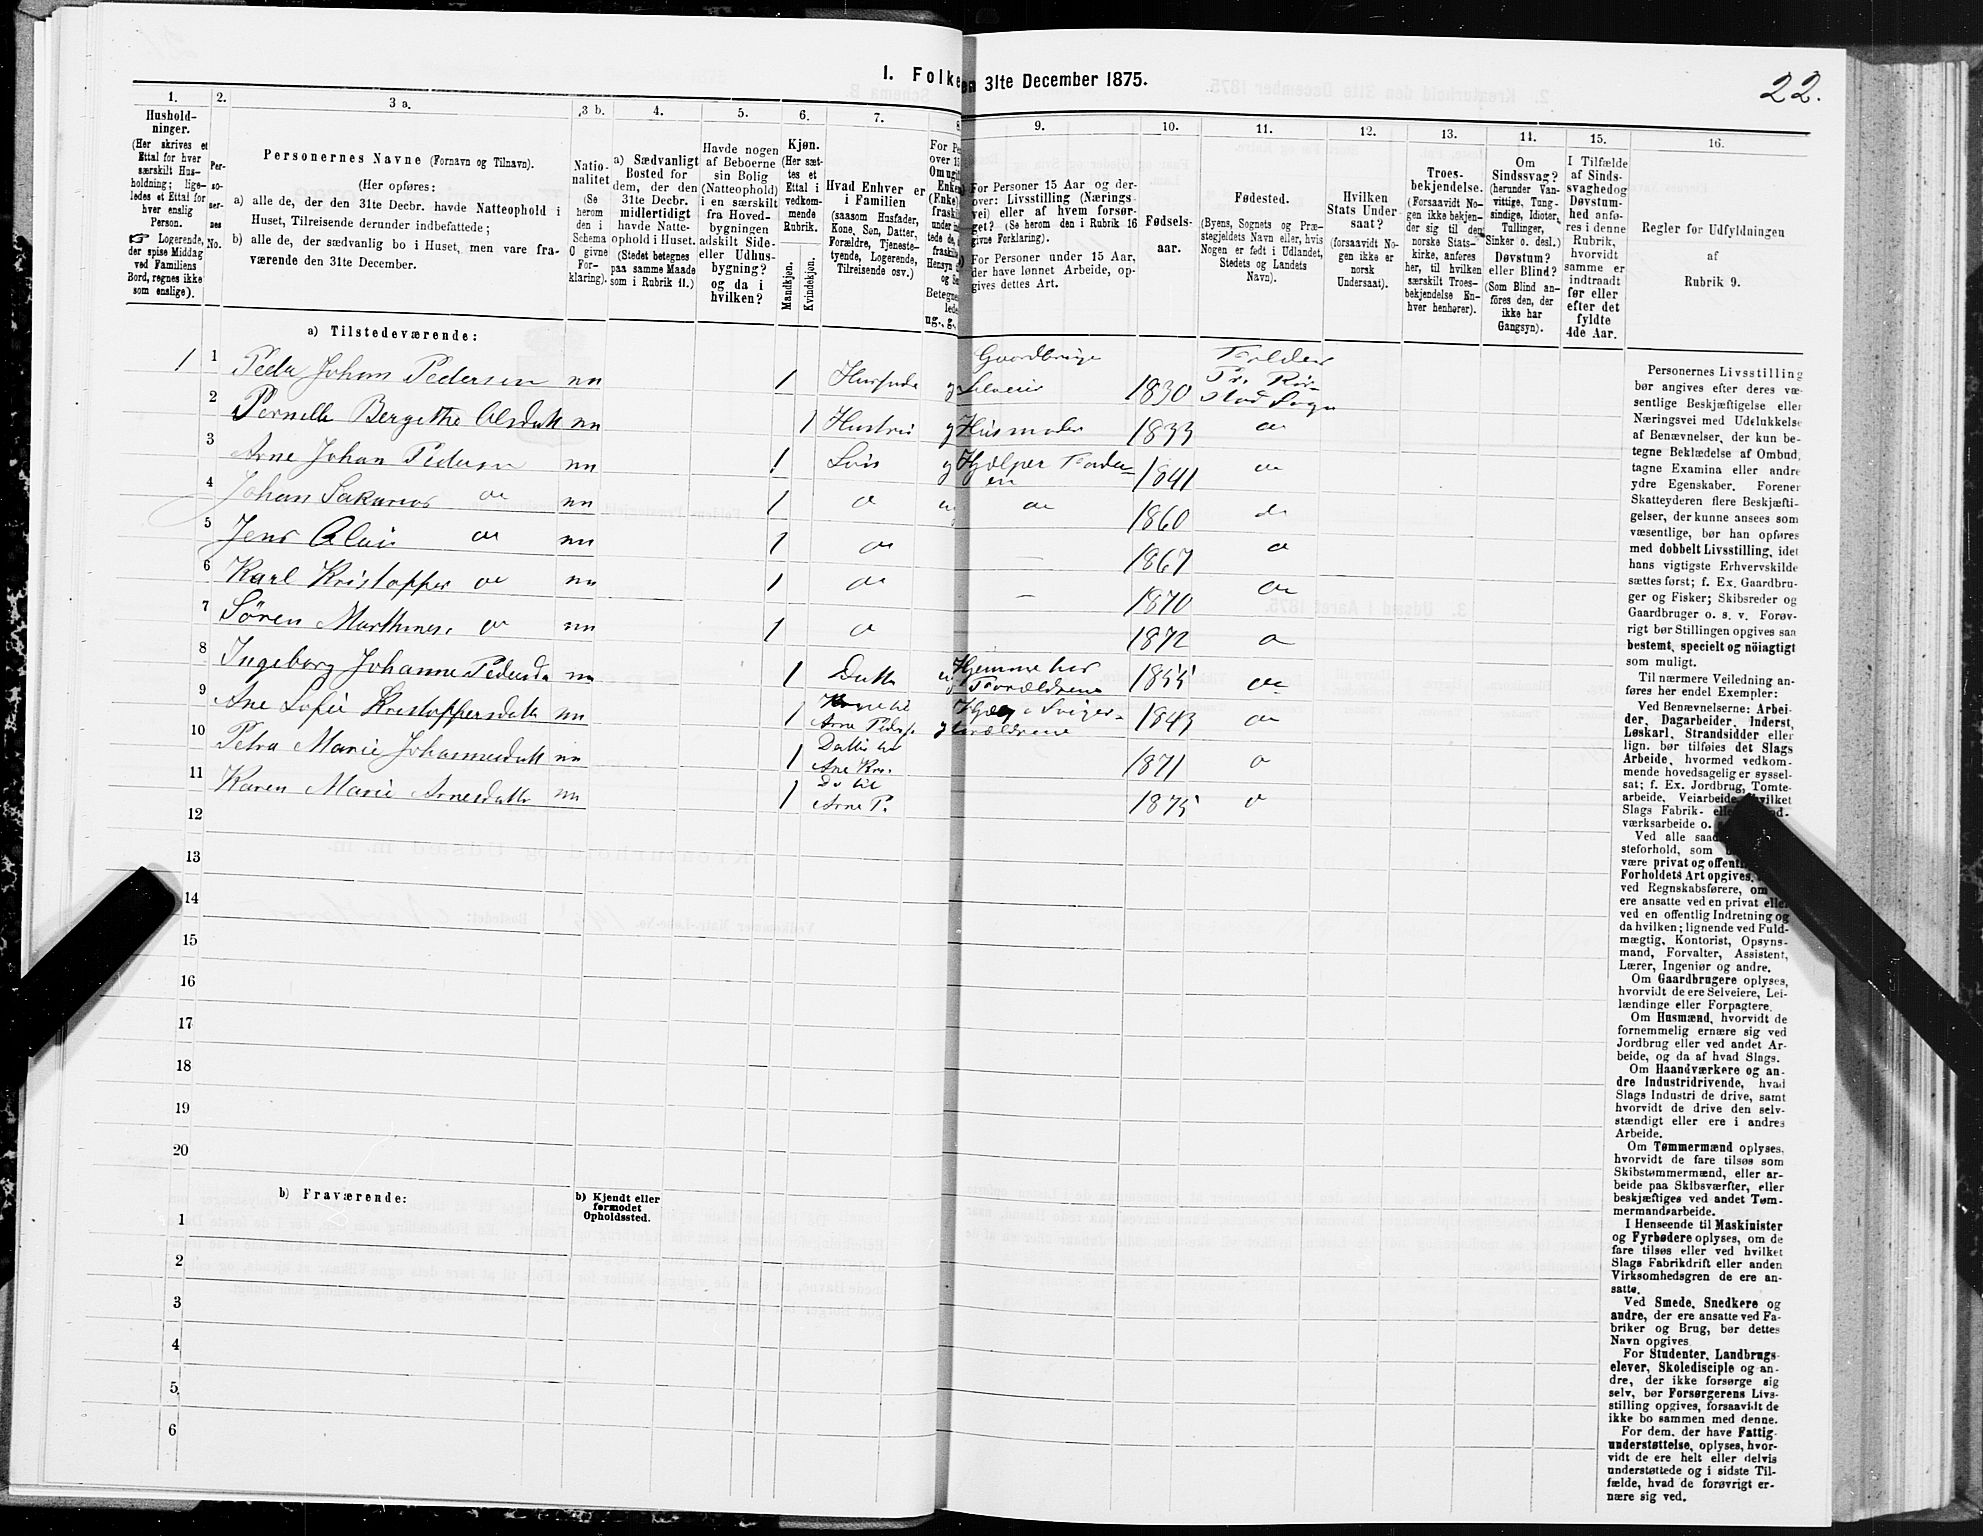 22.
I. Folke
en 31te December 1875.
1.
Hushold-
ninger.
(Her skrives et
Ettal for hver
særskilt Hus-
holdning; lige-
ledes et Ettal for
hver enslig
Person.
☞ Logerende,
der spise Middag
ved Familiens
Bord, regnes ikke
som enslige).
2.
Per-
so-
ner-
nes
No.
3 a.
Personernes Navne (Fornavn og Tilnavn).
(Her opføres:
a) alle de, der den 31te Decbr. havde Natteophold i
Huset, Tilreisende derunder indbefattede;
b) alle de, der sædvanlig bo i Huset, men vare fra-
værende den 31te December.
3 b.
Natio-
nalitet
(Se
herom
den i
Schema
O givne
For-
klaring).
4.
a) Sædvanligt
Bosted for
dem, der den
31te Decbr.
midlertidigt
havde Natte-
ophold i Huset.
(Stedet betegnes
paa samme Maade
som i Rubrik 11.)
5.
Havde nogen
af Beboerne
sin Bolig
(Natteophold)
i en særskilt
fra Hoved-
bygningen
adskilt Side-
eller Udhus-
bygning?
og da i
hvilken?
6.
Kjøn.
(Her sæt-
tes et
Ettal i
vedkom-
mende
Rubrik.
Mandkjøn.
Kvindekjøn.
7.
Hvad Enhver er
i Familien
(saasom Husfader,
Kone, Søn, Datter,
Forældre, Tjeneste-
tyende, Logerende,
Tilreisende osv.)
8
For Pe
over 15
Om ugif
Enke
(Enke)
fraskil
under in
tede de,
fraskille
Hensyn
og Se
Betegne
lede
ug., g.,
9.
For Personer 15 Aar og der-
over: Livsstilling (Nærings-
vei) eller af hvem forsør-
get? (Se herom den i Rubrik 16
givne Forklaring).
For Personer under 15 Aar,
der have lønnet Arbeide, op-
gives dettes Art.
10.
Fødsels-
aar.
11.
Fødested.
(Byens, Sognets og Præ-
stegjeldets Navn eller, hvis
Nogen er født i Udlandet,
Stedets og Landets
Navn).
12.
Hvilken
Stats Under-
saat?
(forsaavidt No-
gen ikke er
norsk
Undersaat).
13.
Troes-
bekjendelse.
(Forsaavidt No-
gen ikke bekjen-
der sig til den
norske Stats-
kirke, anføres
her, til hvilken
særskilt Troes-
bekjendelse En-
hver henhører).
14.
Om
Sindssvag?
(herunder Van-
vittige, Tung-
sindige, Idioter,
Tullinger,
Sinker o. desl.)
Døvstum?
eller Blind?
(Som Blind an-
føres den, der
ikke har
Gangsyn).
15.
I Tilfælde
af Sinds-
svaghed og
Døvstum-
hed anfø-
res i denne
Rubrik,
hvorvidt
samme er
indtraadt
før eller
efter det
fyldte
4de Aar.
16.
Regler for Udfyldningen
af
Rubrik 9.
a) Tilstedeværende:
1 1 Peder Johan Pedersen nn 1 Husfader g Gaardbruger Selveier 1830 Folden Pr. Rør- stad Sogn
2 Pernille Bergithe Olsdatt nn 1 Hustru g Husmoder 1833
3 Arne Johan Pedersen nn 1 Søn g Hjælper Foræld- en 1841
4 Johan Sakarias do nn 1 do ug do 1860 do
5 Jens Olai do nn 1 do – 1867 do
6 Karl Kristoffer do nn 1 do – 1870 do
7 Sören Marthines do nn 1 do 1872 do
8 Ingeborg Johanne Pedersda nn 1 Datter ug Hjemme hos Forældrene 1855 do
9 Ane Sofie Kristoffersdatt nn 1 Kone til Arne Peders. g Hjælp. Sviger- forældrene 1843 do
10 Petra Marie Johannesdatt nn 1 Datter til Ane Kris. 1871 do
11 Karen Marie Arnesdatter nn 1 Do til Arne P. 1875 do
12
13
14
15
16
17
18
19
20
b) Fraværende:
b) Kjendt eller
formodet
Opholdssted.
1
2
3
4
5
6
Personernes Livsstilling
bør angives efter deres væ-
sentlige Beskjæftigelse eller
Næringsvei med Udelukkelse
af Benævnelser, der kun be-
tegne Beklædelse af Ombud,
tagne Examina eller andre
ydre Egenskaber. Forener
Skatteyderen flere Beskjæfti-
gelser, der kunne ansees som
væsentlige, bør han opføres
med dobbelt Livsstilling, idet
hans vigtigste Erhvervskilde
sættes først; f. Ex. Gaardbru-
ger og Fisker; Skibsreder og
Gaardbruger o. s. v. Forøv-
rigt bør Stillingen opgives saa
bestemt, specielt og nøiagtigt
som muligt.
Til nærmere Veiledning an-
føres her endel Exempler:
Ved Benævnelserne: Arbei-
der, Dagarbeider, Inderst,
Løskarl, Strandsidder eller
lign. bør tilføies det Slags
Arbeide, hvormed vedkom-
mende hovedsagelig er syssel-
sat; f. Ex. Jordbrug, Tomte-
arbeide, Veiarbeide, hvilket
Slags Fabrik- eller
værksarbeide o.
Ved alle saad
steforhold, som
være privat og offentl
Forholdets Art opgives,
ved Regnskabsførere, om
ere ansatte ved en privat eller
ved en offentlig Indretning og
da hvilken; lignende ved Fuld-
mægtig, Kontorist, Opsyns-
mand, Forvalter, Assistent,
Lærer, Ingeniør og andre.
Om Gaardbrugere oplyses,
hvorvidt de ere Selveiere, Lei-
lændinge eller Forpagtere.
Om Husmænd, hvorvidt de
fornemmelig ernære sig ved
Jordbrug eller ved andet Ar-
beide, og da af hvad Slags.
Om Haandværkere og an-
dre Industridrivende, hvad
Slags Industri de drive, samt
hvorvidt de drive den selv-
stændigt eller ere i andres
Arbeide.
Om Tømmermænd oplyses,
hvorvidt de fare tilsøs som
Skibstømmermænd, eller ar-
beide paa Skibsværfter, eller
beskjæftiges ved andet Tøm-
mermandsarbeide.
I Henseende til Maskinister
og Fyrbødere oplyses, om de
fare tilsøs eller ved hvilket
Slags Fabrikdrift eller anden
Virksomhedsgren de ere an-
satte.
Ved Smede, Snedkere og
andre, der ere ansatte ved Fa-
briker og Brug, bør dettes
Navn opgives
For Studenter, Landbrugs-
elever, Skoledisciple og an-
dre, der ikke forsørge sig
selv, bør Forsørgerens Livs-
stilling opgives, forsaavidt de
ikke bo sammen med denne.
For dem, der have Fattig-
understøttelse, oplyses, hvor-
vidt de ere helt eller delvis
understøttede og i sidste Til-
fælde, hvad de forøvrigt er-
nære sig ved.